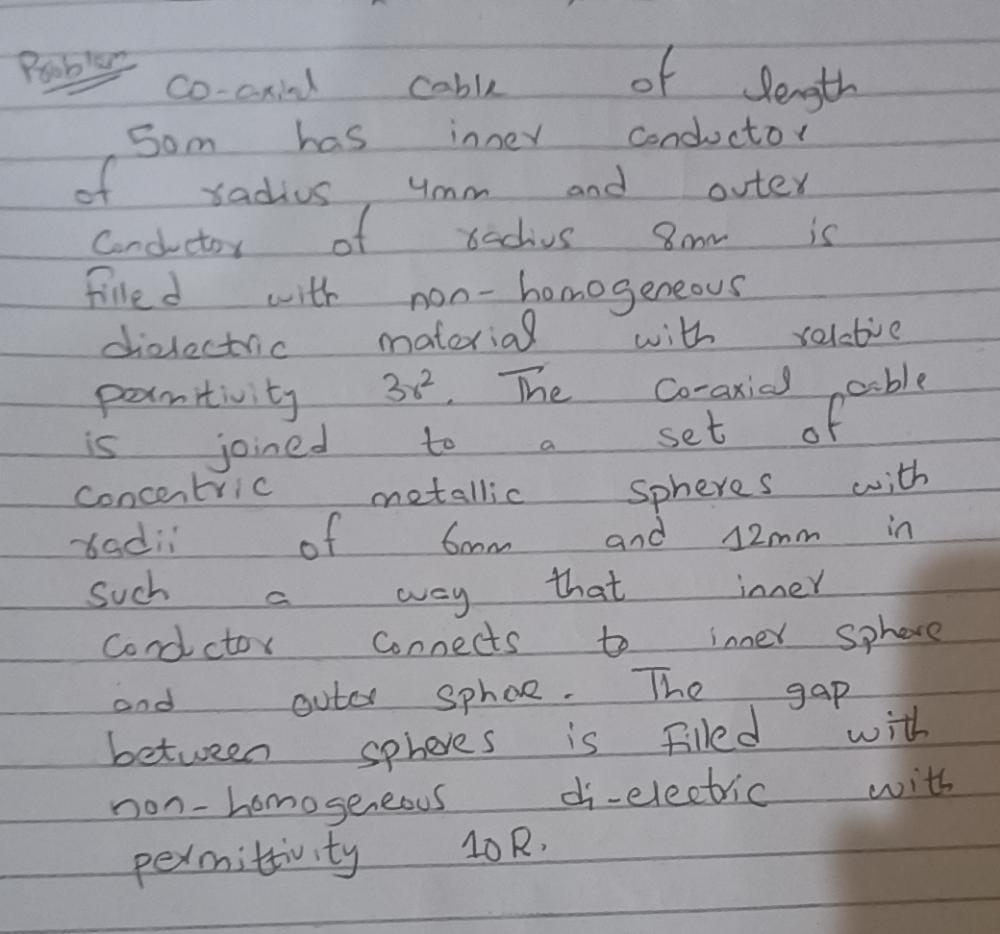 Problem
Co-axial cable of length
50m has inner conductor
of radius 4mm and outer
Conductor of radius 8mm is
filled with non-homogeneous
dielectric material with relative
permitivity 3r². The Co-axial cable
is joined to a set of
concentric metallic spheres with
radii of 6mm and 12mm in
such a way that inner
conductor connects to inner sphere
and outer sphere. The gap
between spheres is filled with
non-homogeneous di-electric with
permittivity 10R.